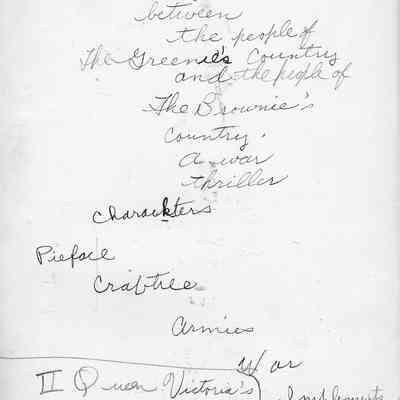 between
the people of
The Greenie's Country
and the people of
The Brownie's
Country.
a war
thriller
Charackters
Pieface
Crabtree
Armies
War
II Queen Victoria's
Implements